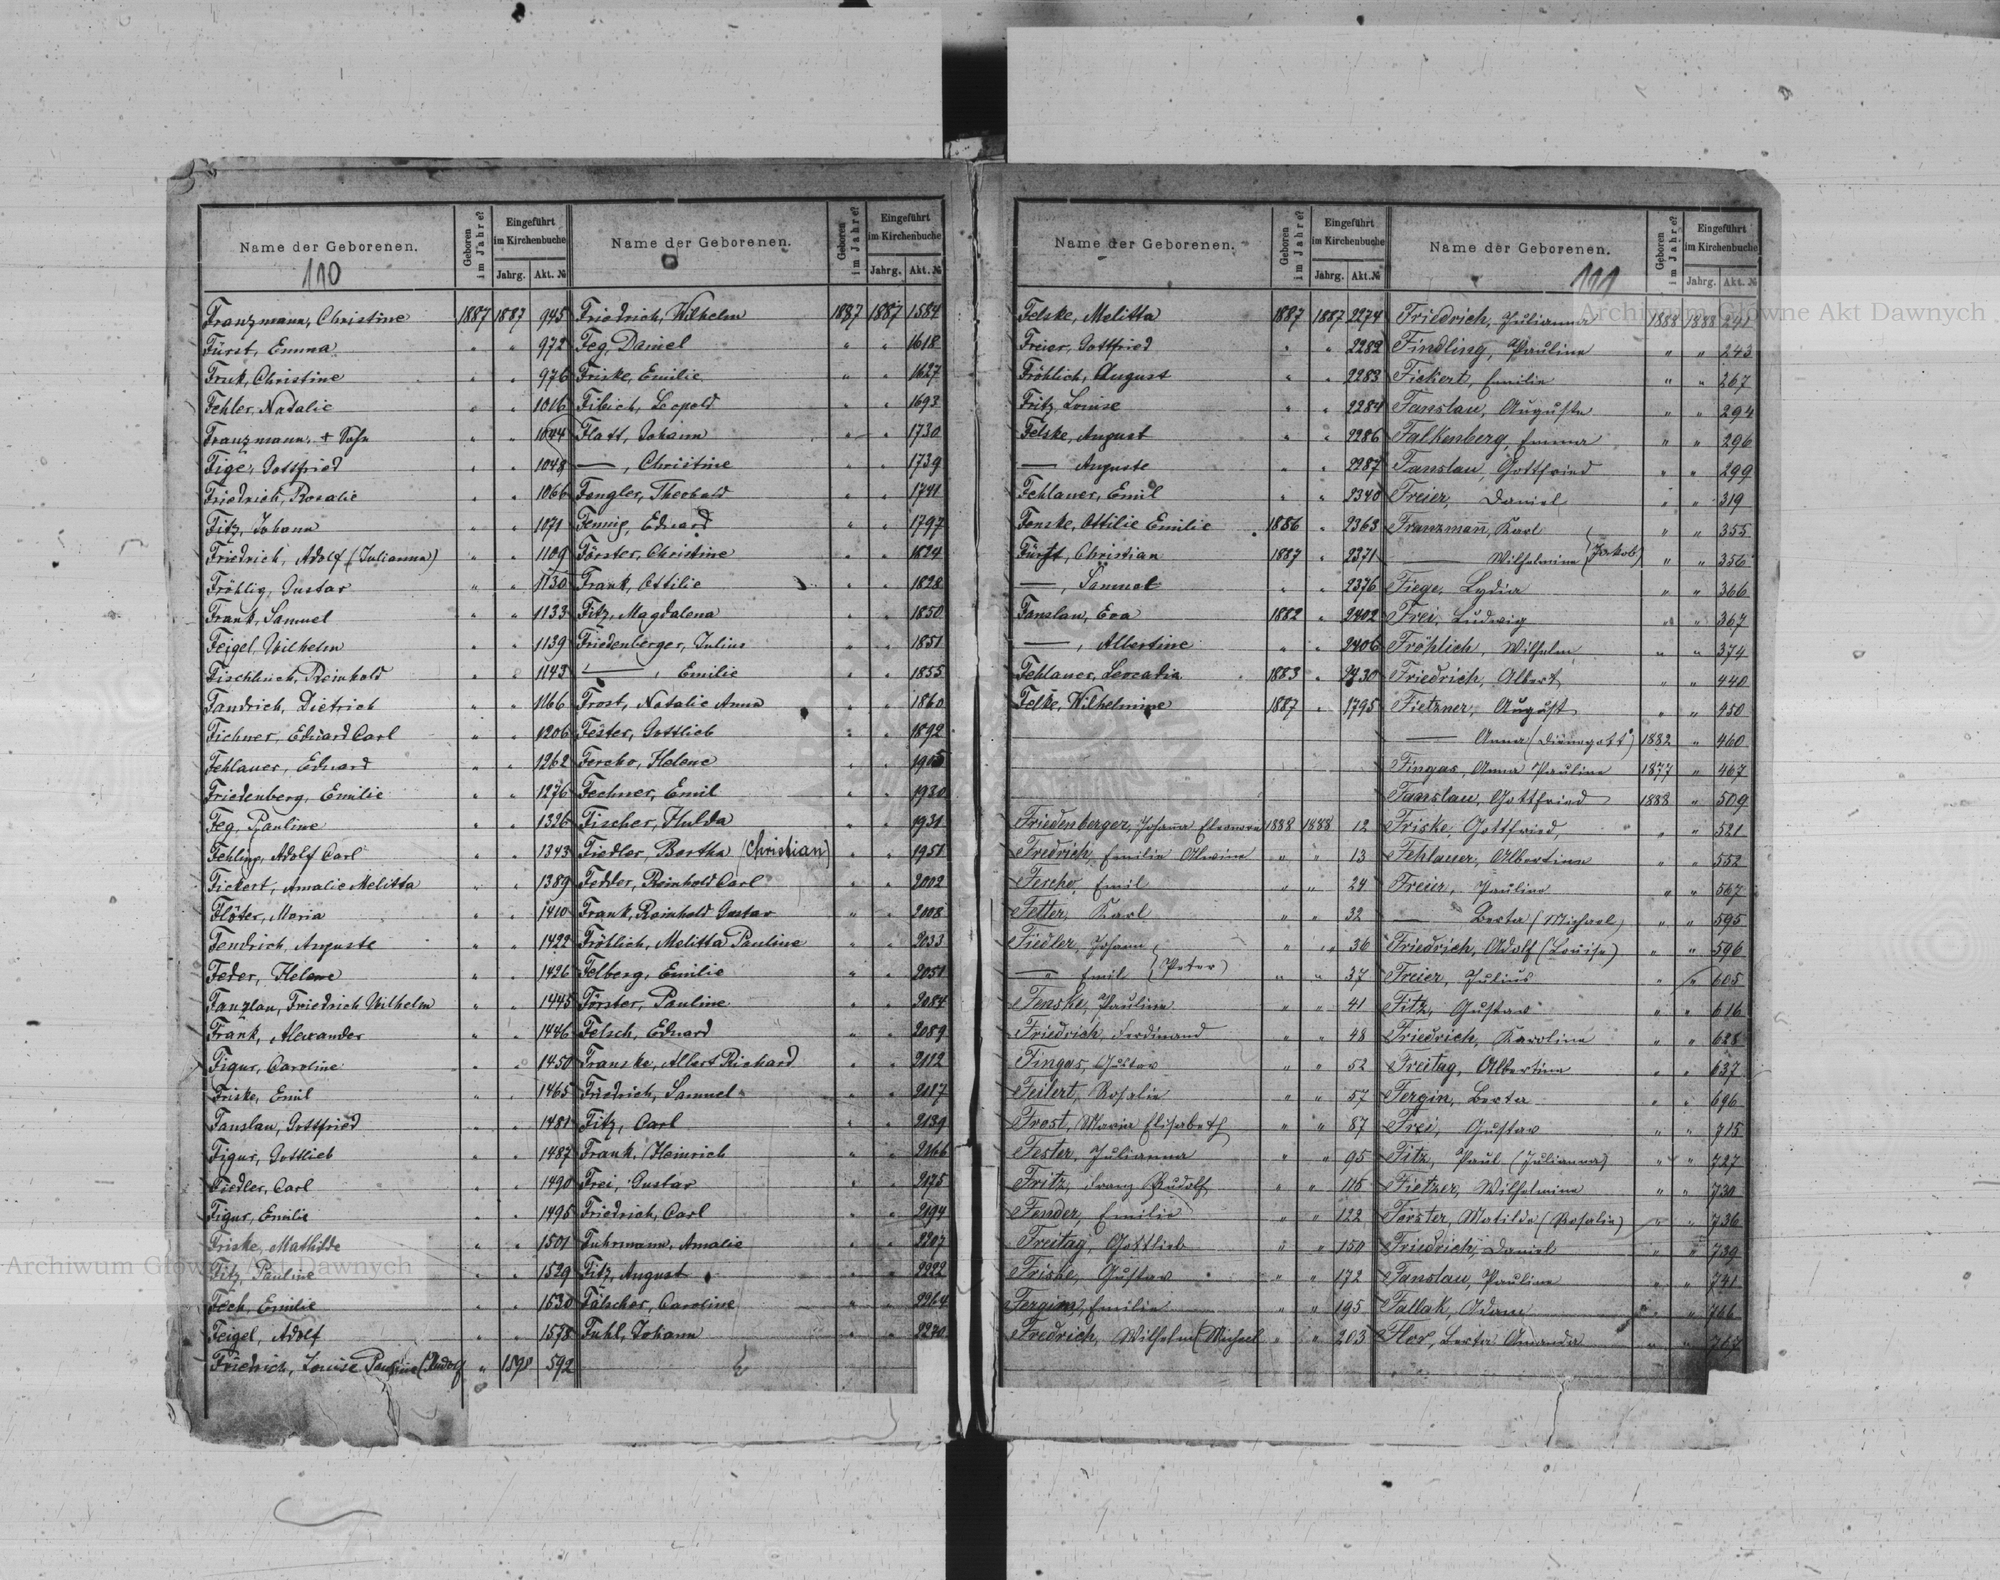 Name der Geborenen.
Geboren im Jahre?
Eingeführt im Kirchenbuche
Jahrg. Akt. №
Name der Geborenen.
Geboren im Jahre?
Eingeführt im Kirchenbuche
Jahrg. Akt. №
110
Franzmann, Christine 1887 1887 945
Fürst, Emma " " 972
Fruk, Christine " " 976
Fehler, Natalie " " 1016
Franzmann, + Sohn " " 1044
Fige, Gottfried " " 1048
Friedrich, Rosalie " " 1066
Fitz, Johann " " 1071
Friedrich, Adolf (Julianna) " " 1109
Fröhlig, Gustav " " 1130
Frank, Samuel " " 1133
Feigel, Wilhelm " " 1139
Reinhold " " 1143
Fandrich, Dietrich " " 1166
Fichner, Eduard Carl " " 1206
Fehlauer, Eduard " " 1262
Friedenberg, Emilie " " 1276
Feg, Pauline " " 1326
Fehling, Adolf Carl " " 1343
Fickert, Amalie Melitta " " 1389
Flöter, Maria " " 1410
Fendrich, Auguste " " 1422
Feder, Helene " " 1426
Fanzlau, Friedrich Wilhelm " " 1445
Frank, Alexander " " 1446
Figur, Caroline " " 1450
Friske, Emil " " 1465
Fanslau, Gottfried " " 1481
Figur, Gottlieb " " 1487
Fiedler, Carl " " 1490
Figur, Emilie " " 1495
Friske, Mathilde " " 1501
Fitz, Pauline " " 1529
Foch, Emilie " " 1530
Feigel, Adolf " " 1578
Friedrich, Louise Pauline (Rudolf " 1898 592
Friedrich, Wilhelm 1887 1887 1584
Feg, Daniel " " 1618
Friske, Emilie " " 1627
Fibich, Leopold " " 1693
Flatt, Johann " " 1730
—, Christine " " 1739
Fengler, Theobald " " 1741
Fennig, Eduard " " 1797
Förster, Christine " " 1824
Frank, Ottilie " " 1828
Fitz, Magdalena " " 1850
Friedenberger, Julius " " 1851
—, Emilie " " 1855
Frost, Natalie Anna " " 1860
Fester, Gottlieb " " 1892
Fercho, Helene " " 1905
Fechner, Emil " " 1930
Fischer, Hulda " " 1931
Fiedler, Bertha (Christian) " " 1951
Fedder, Reinhold Carl " " 2002
Frank, Reinhold Gustav " " 2008
Fröhlich, Melitta Pauline " " 2033
Felberg, Emilie " " 2051
Förster, Pauline " " 2084
Felsch, Eduard " " 2089
Franske, Albert Richard " " 2112
Friedrich, Samuel " " 2117
Fitz, Carl " " 2139
Frank, Heinrich " " 2166
Frei, Gustav " " 2175
Friedrich, Carl " " 2194
Fuhrmann, Amalie " " 2207
Fitz, August " " 2222
Fälscher, Caroline " " 2264
Fuhl, Johann " " 2270
Name der Geborenen.
Geboren im Jahre?
Eingeführt im Kirchenbuche
Jahrg. Akt. №
Name der Geborenen.
Geboren im Jahre?
Eingeführt im Kirchenbuche
Jahrg. Akt. №
111
Felske, Melitta 1887 1887 2274
Freier, Gottfried " " 2282
Fröhlich, August " " 2283
Fritz, Louise " " 2284
Felske, August " " 2286
— Auguste " " 2287
Fehlauer, Emil " " 2340
Fenske, Ottilie Emilie 1886 " 2363
Fürst, Christian 1887 " 2371
—, Samuel " " 2376
Fanslau, Eva 1882 " 2402
—, Albertine " " 2406
Fehlauer, Leocadia 1883 " 2430
Felke, Wilhelmine 1887 " 1795
Friedenberger, Johanna Eleonora 1888 1888 12
Fredrich, Emilie Alwine " " 13
Fercho, Emil " " 24
Fetter, Karl " " 32
Fiedler, Johann " " 36
— " Emil (Peter) " " 37
Fenske, Pauline " " 41
Friedrich, Ferdinand " " 48
Fingas, Gustav " " 52
Feilert, Rosalie " " 57
Frost, Maria Elisabeth " " 87
Fester, Julianna " " 95
Fritz, Franz Rudolf " " 115
Fender, Emilie " " 122
Freitag, Gottlieb " " 150
Friske, Gustav " " 172
Fergin, Emilie " " 195
Fredrich, Wilhelm (Michael " " 203
Friedrich, Julianna 1888 1888 241
Findling, Pauline " " 243
Fickert, Emilie " " 267
Fanslau, Auguste " " 294
Falkenberg, Emma " " 296
Fanslau, Gottfried " " 299
Freier, Daniel " " 319
Franzmann, Karl " " 355
— Wilhelmine (Jakob) " " 356
Fiege, Lydia " " 366
Frei, Ludwig " " 367
Fröhlich, Wilhelm " " 374
Friedrich, Albert " " 440
Fietzner, August " " 450
— Anna 1882 " 460
Fingas, Anna Pauline 1877 " 467
Fanslau, Gottfried 1888 " 509
Friske, Gottfried, " " 521
Fehlauer, Albertine " " 552
Freier, Pauline " " 567
— Berta (Michael) " " 595
Friedrich, Adolf (Louise) " " 596
Freier, Julius " " 605
Fitz, Gustav " " 616
Friedrich, Karoline " " 628
Freitag, Albertine " " 637
Fergin, Berta " " 696
Frei, Gustav " " 715
Fitz, Paul (Julianna) " " 727
Fietzer, Wilhelmine " " 730
Förster, Matilde (Rosalie) " " 736
Friedrich, Daniel " " 739
Fanslau, Pauline " " 741
Fallak, Adam " " 766
Flor, Berta Amanda " " 767
Archiwum Główne Akt Dawnych
Archiwum Główne Akt Dawnych